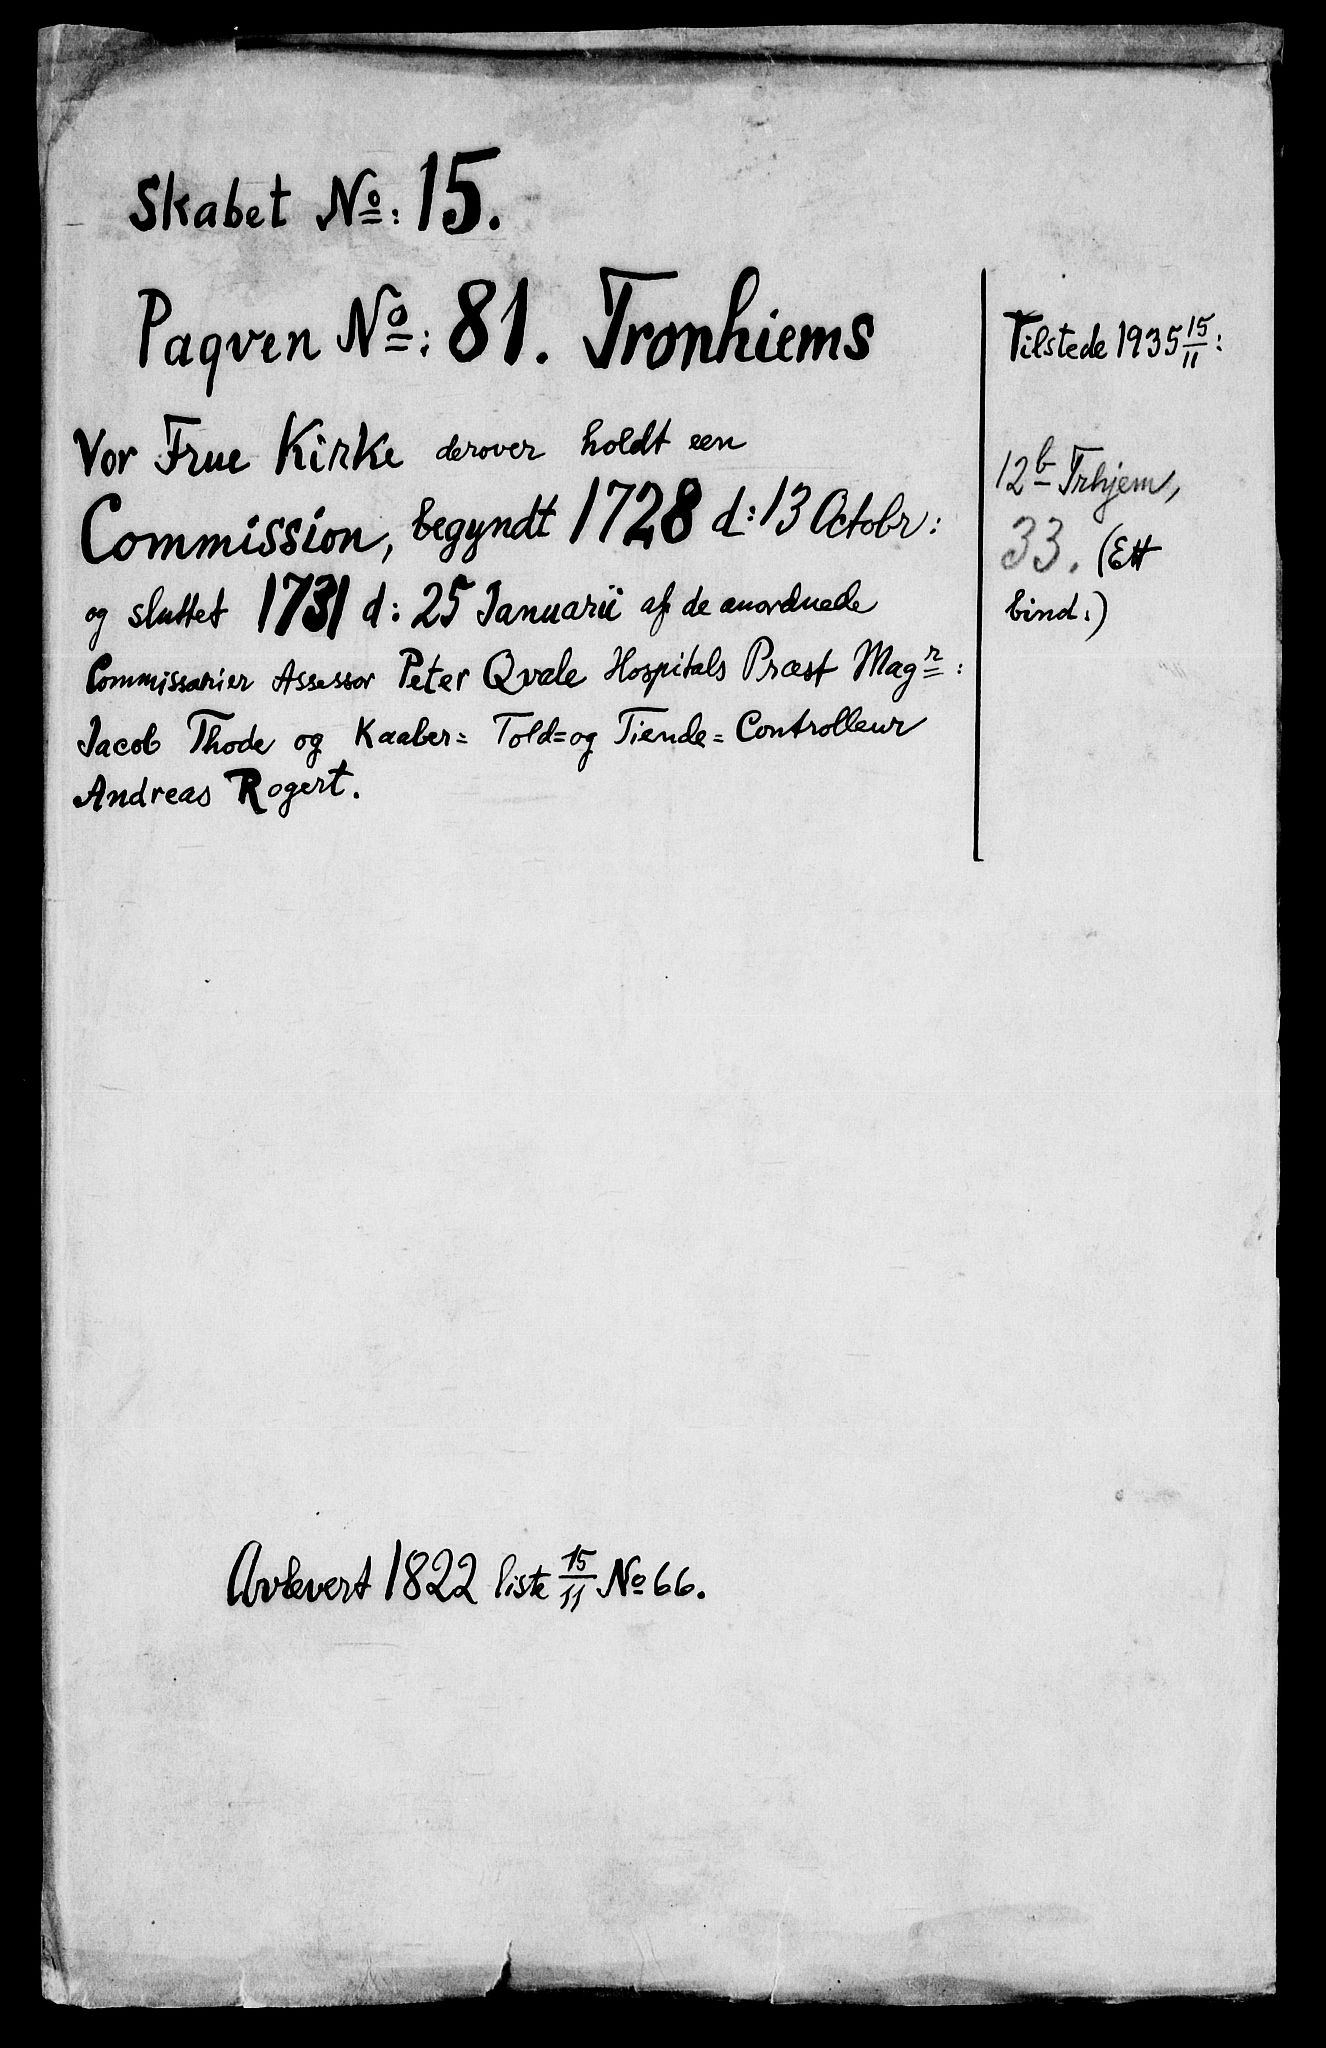 Skabet No: 15.
Paqven No: 81. Tronhiems
Vor Frue Kirke derover holdt een
Commission, begyndt 1728 d: 13 Octobr:
og sluttet 1731 d: 25 Januarii af de anordnede
Commissarier Assessor Peter Qvale Hospitals Præst Magr:
Jacob Thode og Kaaber= Told=og Tiende=Controlleur
Andreas Rogert.
Tilstede 1935 15/11:
12b Trhjem,
33. (Ett
bind.)
Avlevert 1822 liste 15/11 No 66.